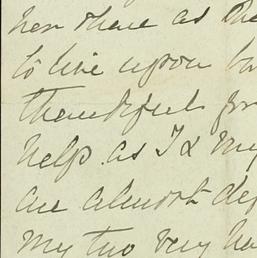 her share as the
to live upon
thankful for
help. as I & my
are almost dep
my two very ha